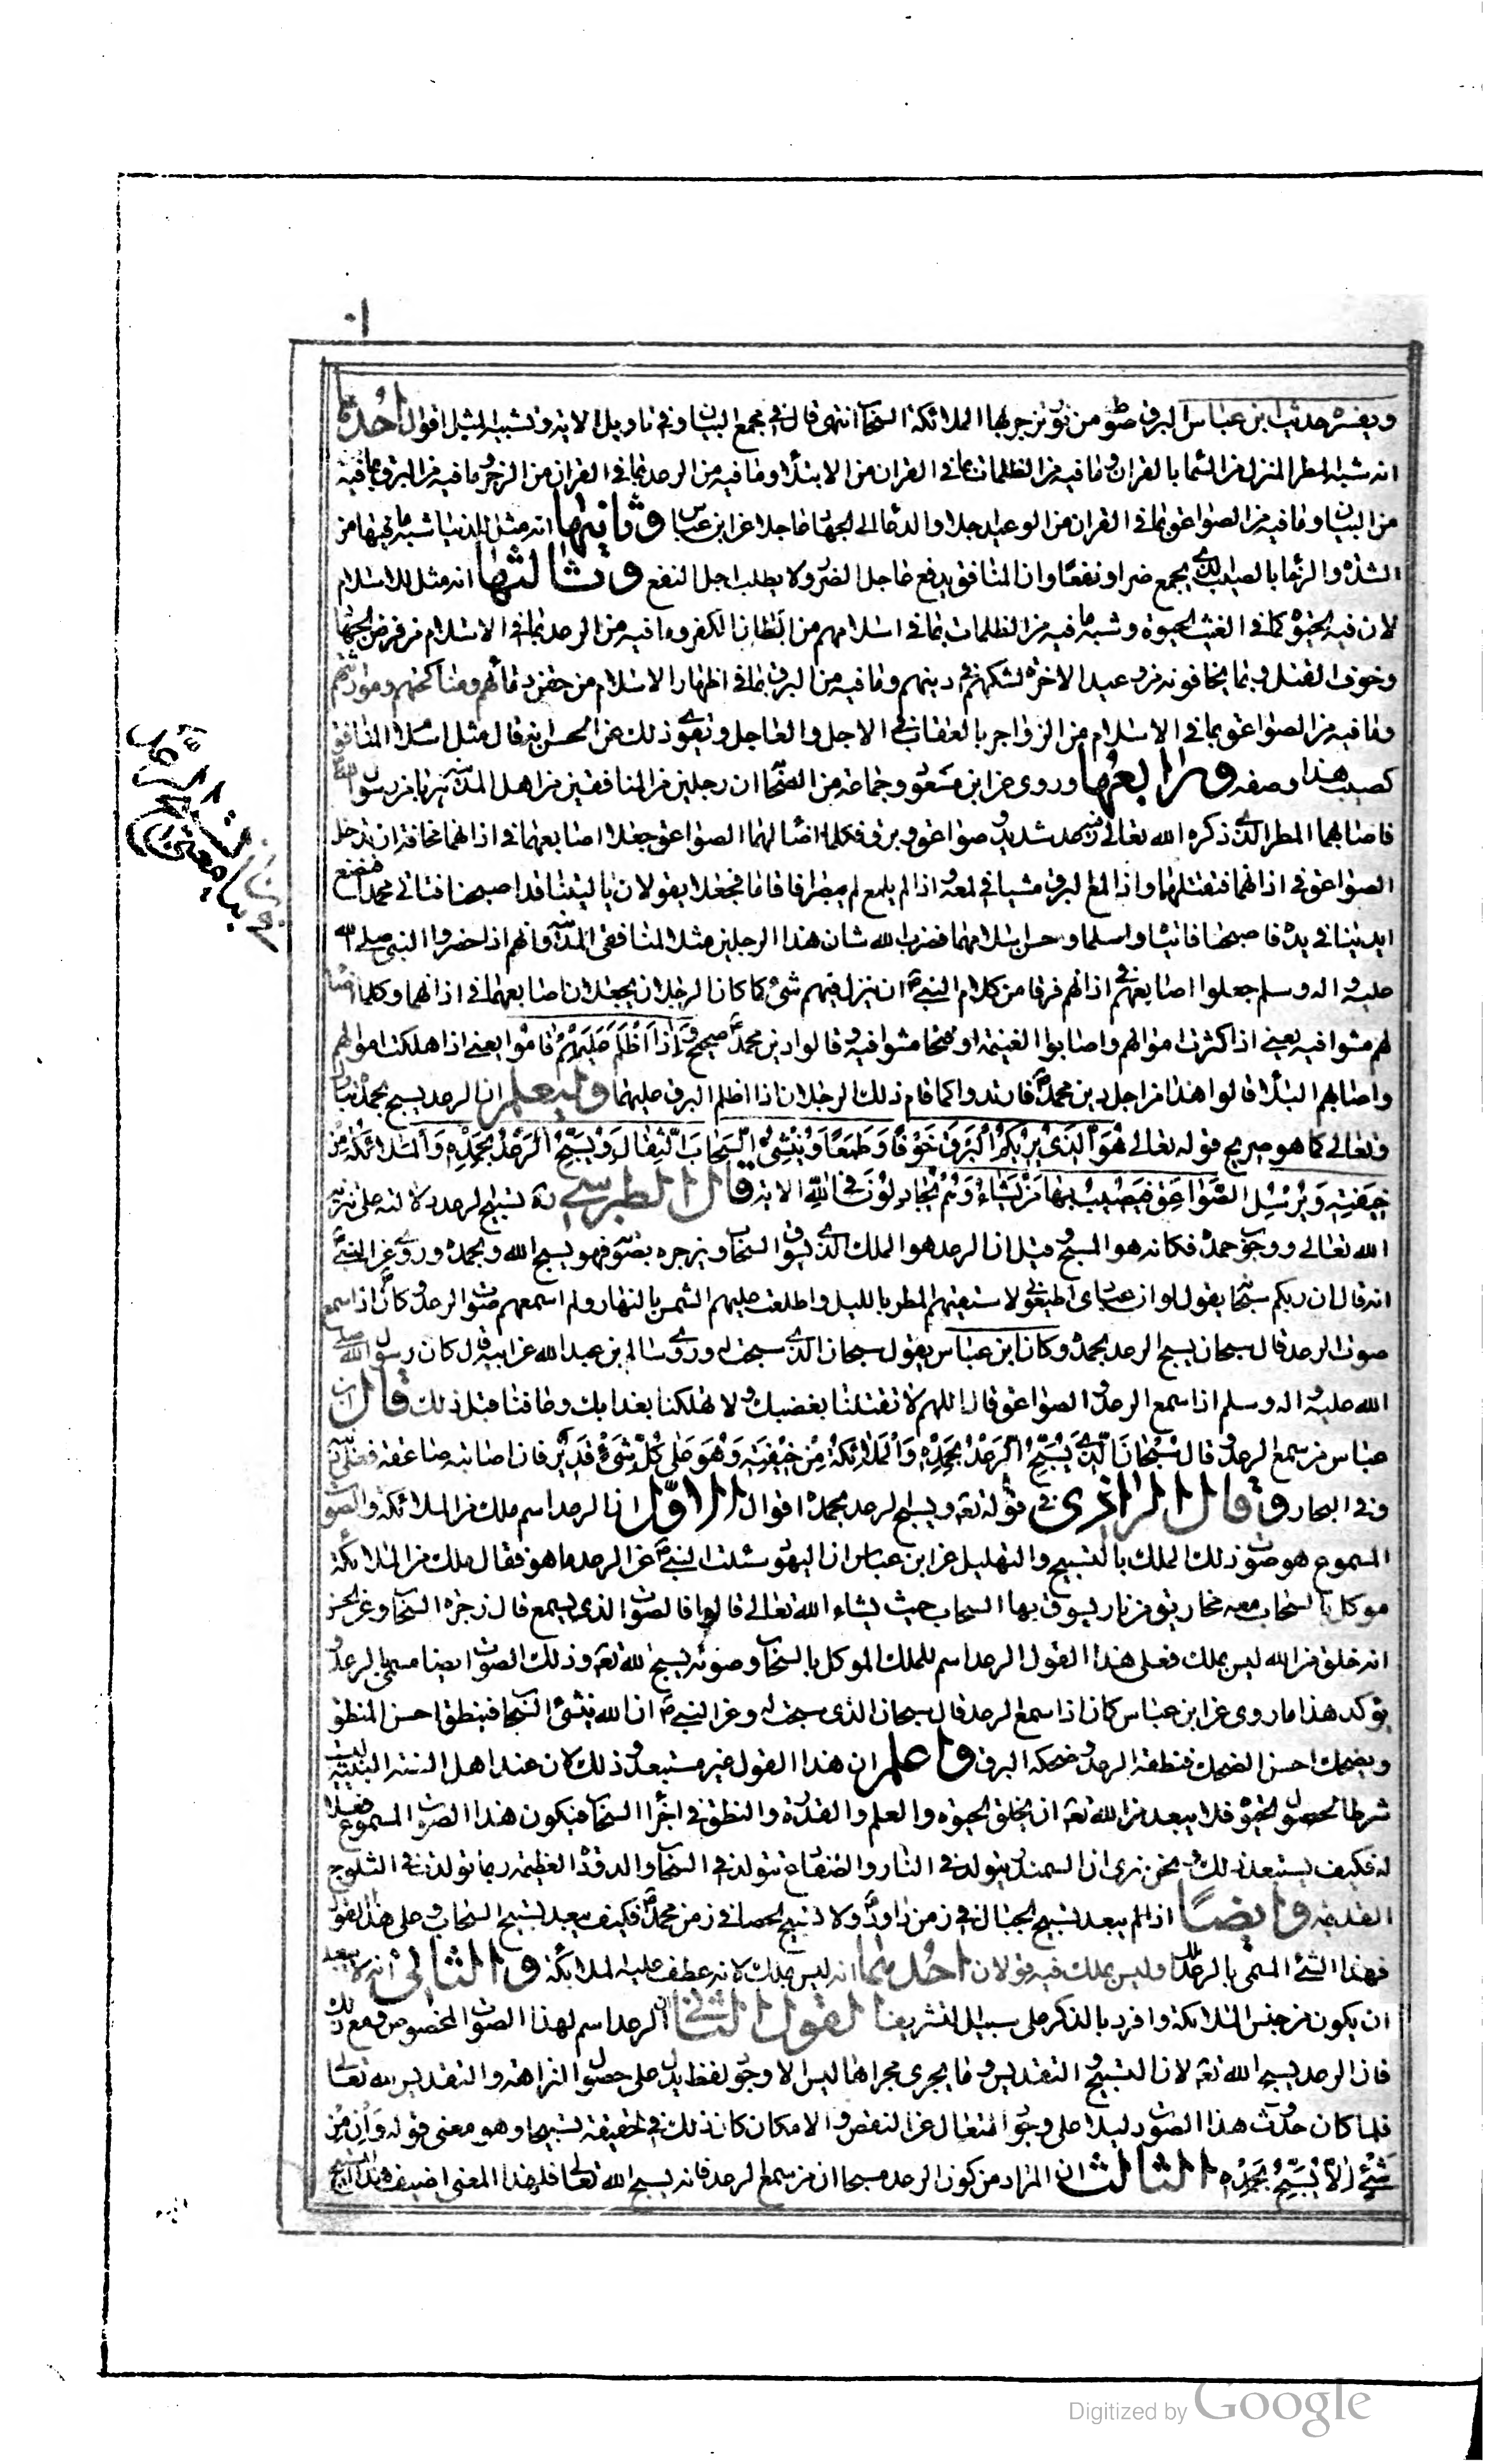 ١٠
ويفسره حديث ابن عباس البرق سوط من نور يزجر بها الملائكة السحاب انتهى قال في مجمع البيان وفي تاويل الاية وتشبيه المثل اقوال احدها
انه شبه المطر المنزل من السماء بالقران وما فيه من الظلمات بما في القران من الابتلاء وما فيه من الرعد بما في القران من الزجر وما فيه من البرق بما فيه
من البيان وما فيه من الصواعق بما في القران من الوعيد اجلا والدعاء الى الجهاد عاجلا عن ابن عباس وثانيها انه مثل للدنيا شبه ما فيها من
الشدة والرخاء بالصيب الذي يجمع ضرا ونفعا وان المنافق يدفع عاجل الضر ولا يطلب اجل النفع وثالثها انه مثل للاسلام
لان فيه الحيوة كما في الغيث الحيوة وشبه ما فيه من الظلمات بما في اسلامهم من ابطان الكفر وما فيه من الرعد بما في الاسلام من فرض الجهاد
وخوف القتل وبما يخافونه من وعيد الاخرة لشكهم في دينهم وما فيه من البرق بما في اظهار الاسلام من حقن دمائهم ومناكحتهم وموارثتهم
وما فيه من الصواعق بما في الاسلام من الزواجر بالعقاب في الاجل والعاجل ويقوي ذلك عن الحسن انه قال مثل اسلام المنافق
كصيب هذا وصفه ورابعها وروى عن ابن مسعود وجماعة من الصحابة ان رجلين من المنافقين من اهل المدينة هربا من رسول الله
فاصابهما المطر الذي ذكره الله تعالى فيه رعد شديد وصواعق وبرق فكلما اضاء لهما الصواعق جعلا اصابعهما في اذانهما مخافة ان تدخل
الصواعق في اذانهما فتقتلهما واذا لمع البرق مشيا في لمعه واذا لم يلمع لم يبصرا فاقاما فجعلا يقولان يا ليتنا قد اصبحنا فناتي محمدا فنضع
ايدينا في يده فاصبحا فاتياه واسلما وحسن اسلامهما فضرب الله شان هذا الرجلين مثلا لمنافقي المدينة وانهم اذا حضروا النبي صلى الله
عليه واله وسلم جعلوا اصابعهم في اذانهم فرقا من كلام النبي ان ينزل فيهم شئ كما كان الرجلان يجعلان اصابعهما في اذانهما وكلما اضاء
لهم مشوا فيه يعني اذا كثرت اموالهم واصابوا الغنيمة او فتحا مشوا فيه وقالوا دين محمد صحيح واذا اظلم عليهم قاموا يعني اذا هلكت اموالهم
واصابهم البلاء قالوا هذا من اجل دين محمد فارتدوا كما قام ذلك الرجلان اذا اظلم البرق عليهما وليعلم ان الرعد يسبح بحمده تبارك
وتعالى كما هو صريح قوله تعالى هُوَ الَّذِي يُرِيكُمُ الْبَرْقَ خَوْفًا وَطَمَعًا وَيُنْشِئُ السَّحَابَ الثِّقَالَ وَيُسَبِّحُ الرَّعْدُ بِحَمْدِهِ وَالْمَلائِكَةُ مِنْ
خِيفَتِهِ وَيُرْسِلُ الصَّوَاعِقَ فَيُصِيبُ بِهَا مَنْ يَشَاءُ وَهُمْ يُجَادِلُونَ فِي اللَّهِ الاية قال الطبرسي ره تسبيح الرعد دلالته على تنزيه
الله تعالى ووجوب حمده فكانه هو المسبح وقيل ان الرعد هو الملك الذي يسوق السحاب ويزجره بصوته فهو يسبح الله ويحمده وروي عن النبي
انه قال ان ربكم سبحانه يقول لو ان عبادي اطاعوني لاسقيتهم المطر بالليل واطلعت عليهم الشمس بالنهار ولم اسمعهم صوت الرعد وكان اذا سمع
صوت الرعد قال سبحان يسبح الرعد بحمده وكان ابن عباس يقول سبحان الذي سبحت له وروي سالم بن عبد الله عن ابيه قال كان رسول الله صلى
الله عليه واله وسلم اذا سمع الرعد والصواعق قال اللهم لا تقتلنا بغضبك ولا تهلكنا بعذابك وعافنا قبل ذلك قال ابن
عباس من سمع الرعد وقال سُبْحَانَ الَّذِي يُسَبِّحُ الرَّعْدُ بِحَمْدِهِ وَالْمَلائِكَةُ مِنْ خِيفَتِهِ وَهُوَ عَلَى كُلِّ شَيْءٍ قَدِيرٌ فان اصابته صاعقة فعلي ديته
وفي البحار وقال الرازي في قوله تع ويسبح الرعد بحمده اقوال الاول ان الرعد اسم ملك من الملائكة والصوت
المسموع هو صوت ذلك الملك بالتسبيح والتهليل عن ابن عباس ان اليهود سئلت النبي عن الرعد ما هو فقال ملك من الملائكة
موكل بالسحاب معه مخاريق من نار يسوق بها السحاب حيث يشاء الله تعالى قالوا فما الصوت الذي يسمع قال زجره السحاب وعن الحسن
انه خلق من الله ليس بملك فعلى هذا القول الرعد اسم للملك الموكل بالسحاب وصوته تسبيح لله تع وذلك الصوت ايضا مسمى بالرعد
يؤكد هذا ما روى عن ابن عباس كان اذا سمع الرعد قال سبحان الذي سبحت له وعن النبي ان الله ينشئ السحاب فينطق احسن المنطق
ويضحك احسن الضحك فنطقه الرعد وضحكه البرق واعلم ان هذا القول غير مستبعد وذلك لان عند اهل السنة البنية ليست
شرطا لحصول الحيوة فلا يبعد من الله تع ان يخلق الحيوة والعلم والقدرة والنطق في اجزاء السحاب فيكون هذا الصوت المسموع فعلا
له فكيف يستبعد ذلك ونحن نرى ان السمندل يتولد في النار والضفادع تتولد في السحاب والدودة العظيمة ربما تولدت في الثلوج
القديمة وايضا اذا لم يبعد تسبيح الجبال في زمن داود ولا تسبيح الحصا في زمن محمد فكيف يبعد تسبيح السحاب وعلى هذا القول
فهذا الشئ المسمى بالرعد ملك اوليس بملك فيه قولان احدهما انه ليس بملك لانه عطف عليه الملائكة والثاني انه لا يبعد
ان يكون من جنس الملائكة وافرد بالذكر على سبيل التشريف القول الثاني ان الرعد اسم لهذا الصوت المخصوص ومع ذلك
فان الرعد يسبح الله تع لان التسبيح والتقديس وما يجري مجراها ليس الا وجود لفظ يدل على حصول النزاهة والتقديس لله تعالى
فلما كان حدوث هذا الصوت دليلا على وجود المتعال عن النقص والامكان كان ذلك في الحقيقة تسبيحا وهو معنى قوله وَاِنْ مِنْ
شَيْءٍ اِلَّا يُسَبِّحُ بِحَمْدِهِ الثالث ان المراد من كون الرعد مسبحا ان من سمع الرعد فانه يسبح الله تعالى فلهذا المعنى اضيف هذا التسبيح
Digitized by Google